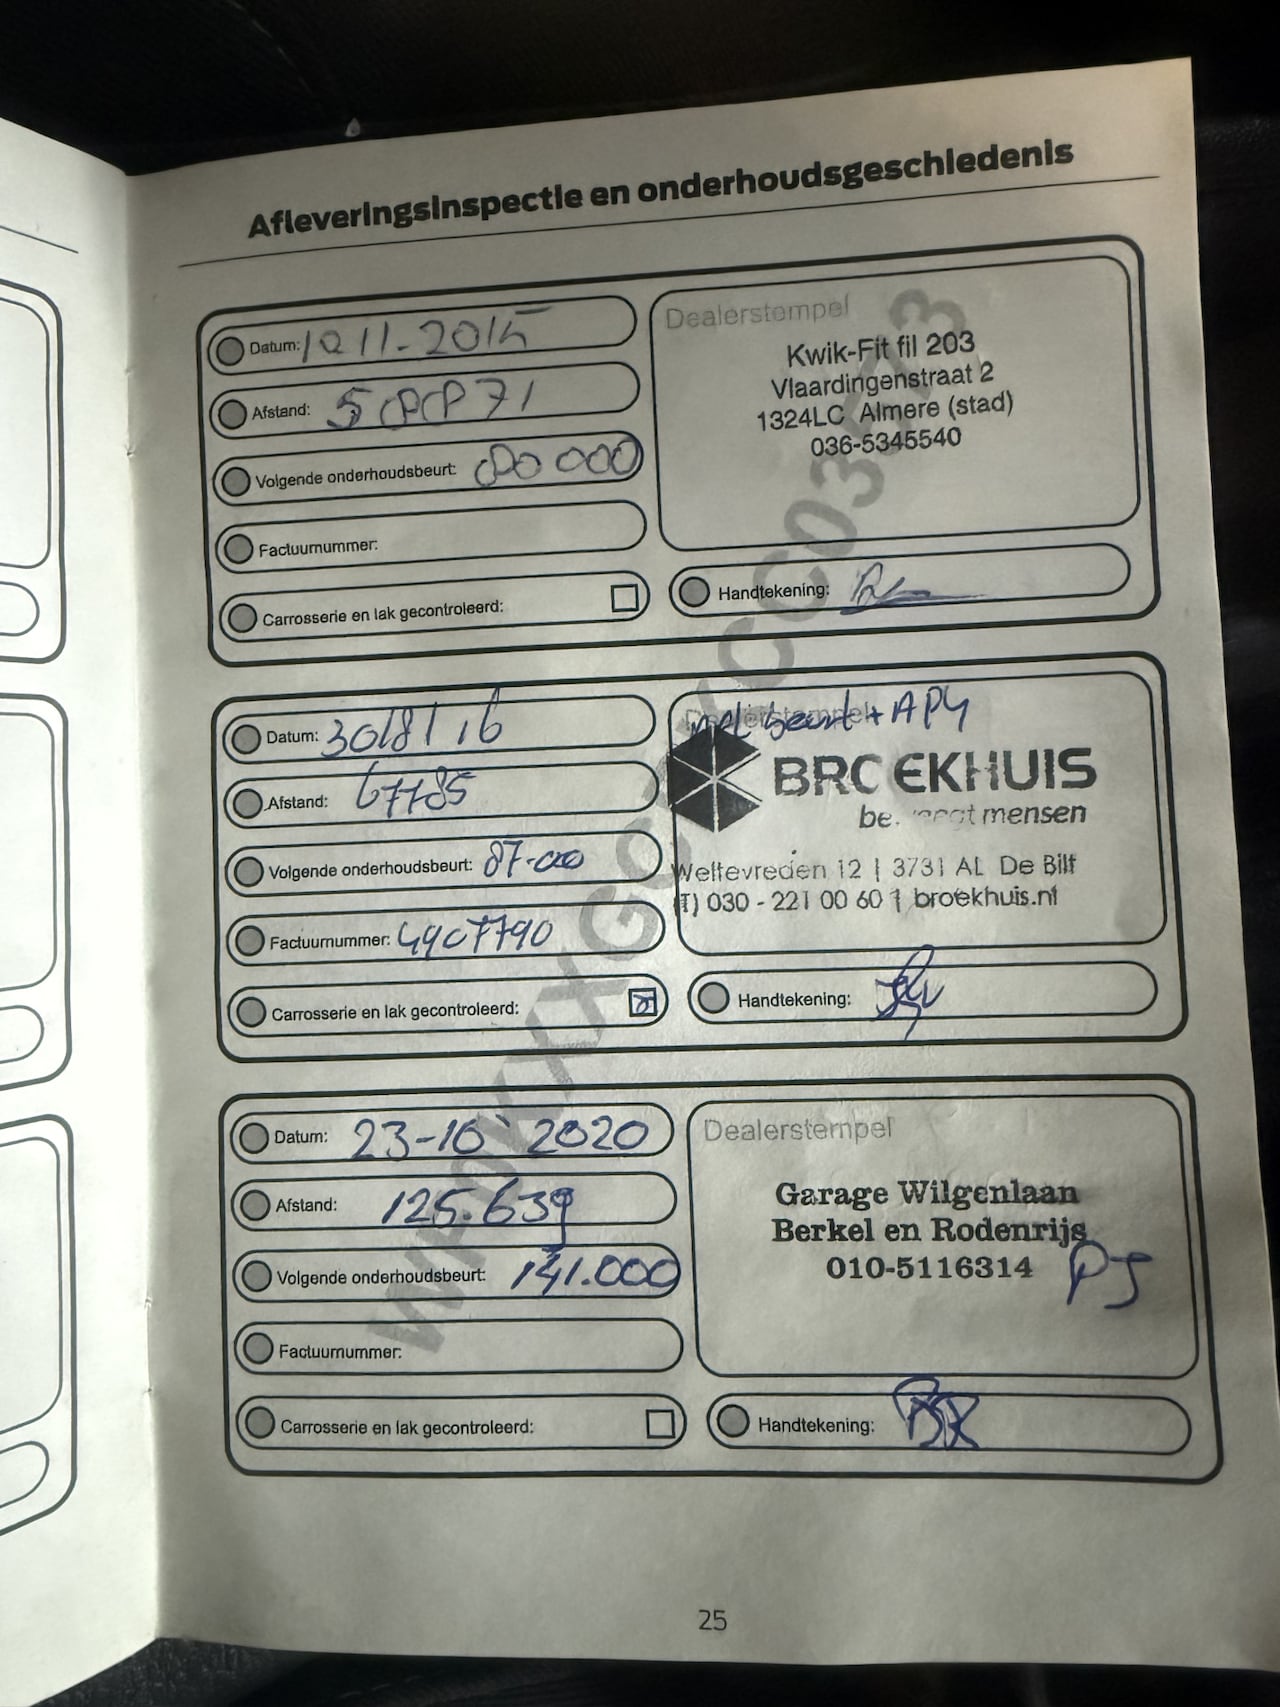 Afleveringsinspectie en onderhoudsgeschiedenis
Datum: 10 11-2015
Afstand: 58871
Volgende onderhoudsbeurt: 80 000
Factuurnummer:
Carrosserie en lak gecontroleerd:
Dealerstempel
Kwik-Fit fil 203
Vlaardingenstraat 2
1324LC Almere (stad)
036-5345540
Handtekening:
Datum: 30/8/16
Afstand: 67785
Volgende onderhoudsbeurt: 87-000
Factuurnummer: 4907790
Carrosserie en lak gecontroleerd:
Dealerstempel
beurt + APK
BROEKHUIS
mensen
Weltevreden 12 | 3731 AL De Bilt
(T) 030 - 221 00 60 | broekhuis.nl
Handtekening:
Datum: 23-10-2020
Afstand: 125.639
Volgende onderhoudsbeurt: 141.000
Factuurnummer:
Carrosserie en lak gecontroleerd:
Dealerstempel
Garage Wilgenlaan
Berkel en Rodenrijs
010-5116314
Handtekening:
25